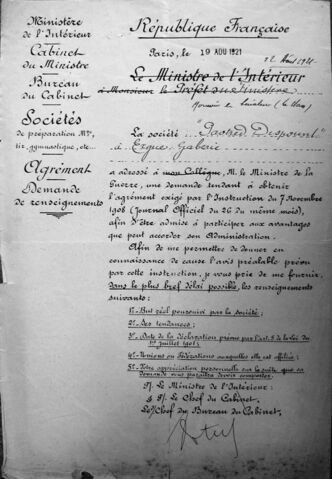 Ministère
de l'Intérieur
Cabinet
du Ministre
Bureau
du Cabinet
Sociétés
de préparation Mre,
tir, gymnastique, etc...
Agrément
Demande
de renseignements
République Française
Paris, le 19 AOU 1921
22 Aout 1921
Le Ministre de l'Intérieur
à Monsieur le Préfet du Finistère
Monsieur le
La société "Paotred Dispount"
à Ergué-Gabéric
a adressé à mon Collègue, M. le Ministre de la
Guerre, une demande tendant à obtenir
l'agrément exigé par l'Instruction du 7 Novembre
1908 (Journal Officiel du 26 du même mois),
afin d'être admise à participer aux avantages
que peut accorder son Administration.
Afin de me permettre de donner en
connaissance de cause l'avis préalable prévu
par cette instruction, je vous prie de me fournir,
dans le plus bref délai possible, les renseignements
suivants :
1°- But réel poursuivi par la société ;
2°- Ses tendances ;
3°- Date de la déclaration prévue par l'art. 5 de la loi du
1er juillet 1901 ;
4°- Unions ou Fédérations auxquelles elle est affiliée ;
5°- Votre appréciation personnelle sur la suite que sa
demande vous paraîtra devoir comporter.
P/. Le Ministre de l'Intérieur :
P/. Le Chef du Cabinet,
Le Chef du Bureau du Cabinet,